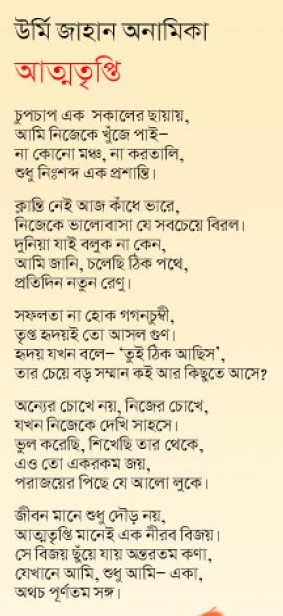 উর্মি জাহান অনামিকা
আত্মতৃপ্তি
চুপচাপ এক সকালের ছায়ায়,
আমি নিজেকে খুঁজে পাই–
না কোনো মঞ্চ, না করতালি,
শুধু নিঃশব্দ এক প্রশান্তি।
ক্লান্তি নেই আজ কাঁধে ভারে,
নিজেকে ভালোবাসা যে সবচেয়ে বিরল।
দুনিয়া যাই বলুক না কেন,
আমি জানি, চলেছি ঠিক পথে,
প্রতিদিন নতুন রেণু।
সফলতা না হোক গগনচুম্বী,
তৃপ্ত হৃদয়ই তো আসল গুণ।
হৃদয় যখন বলে– ‘তুই ঠিক আছিস’,
তার চেয়ে বড় সম্মান কই আর কিছুতে আসে?
অন্যের চোখে নয়, নিজের চোখে,
যখন নিজেকে দেখি সাহসে।
ভুল করেছি, শিখেছি তার থেকে,
এও তো একরকম জয়,
পরাজয়ের পিছে যে আলো লুকে।
জীবন মানে শুধু দৌড় নয়,
আত্মতৃপ্তি মানেই এক নীরব বিজয়।
সে বিজয় ছুঁয়ে যায় অন্তরতম কণা,
যেখানে আমি, শুধু আমি– একা,
অথচ পূর্ণতম সঙ্গ।